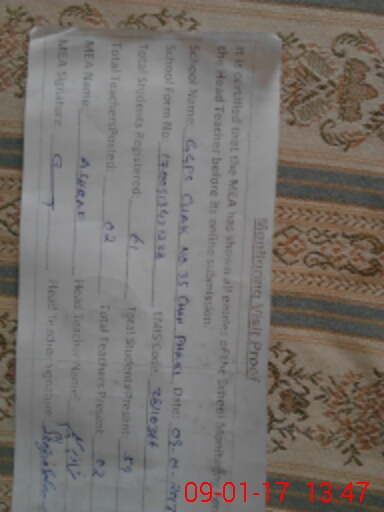 Monitoring Visit Proof
It is certified that the MEA has shown all entries of the School Monitoring
the Head Teacher before its online submission.
School Name: GGPS CHAK NO 35 Date: 09-01-2017
School Form No. EMIS Code:
Total Students Registered: 61 Total Students Present: 59
Total Teachers Posted: 02 Total Teachers Present: 02
MEA Name: ASHRAF Head Teacher Name:
MEA Signature Head Teacher Signature
09-01-17 13:47